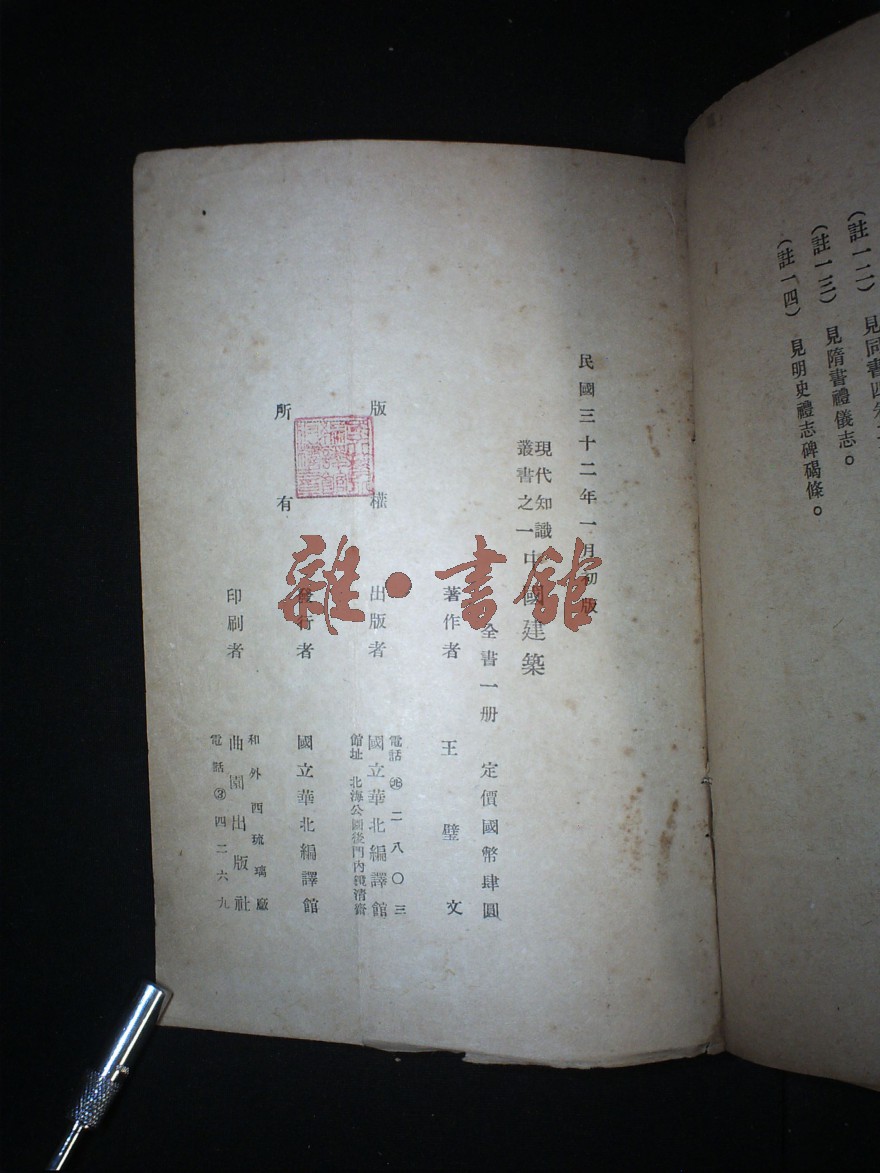 (註一二) 見同書四
(註一三) 見隋書禮儀志。
(註一四) 見明史禮志碑碣條。
民國三十二年一月初版
現代知識
叢書之一
中國建築
全書一册 定價國幣肆圓
著作者 王璧文
版權
所有
出版者
電話 北 二八〇三
國立華北編譯館
館址 北海公園後門內鏡清齋
發行者 國立華北編譯館
印刷者
和外西琉璃廠
曲園出版社
電話 ③ 四二六九
雜·書館